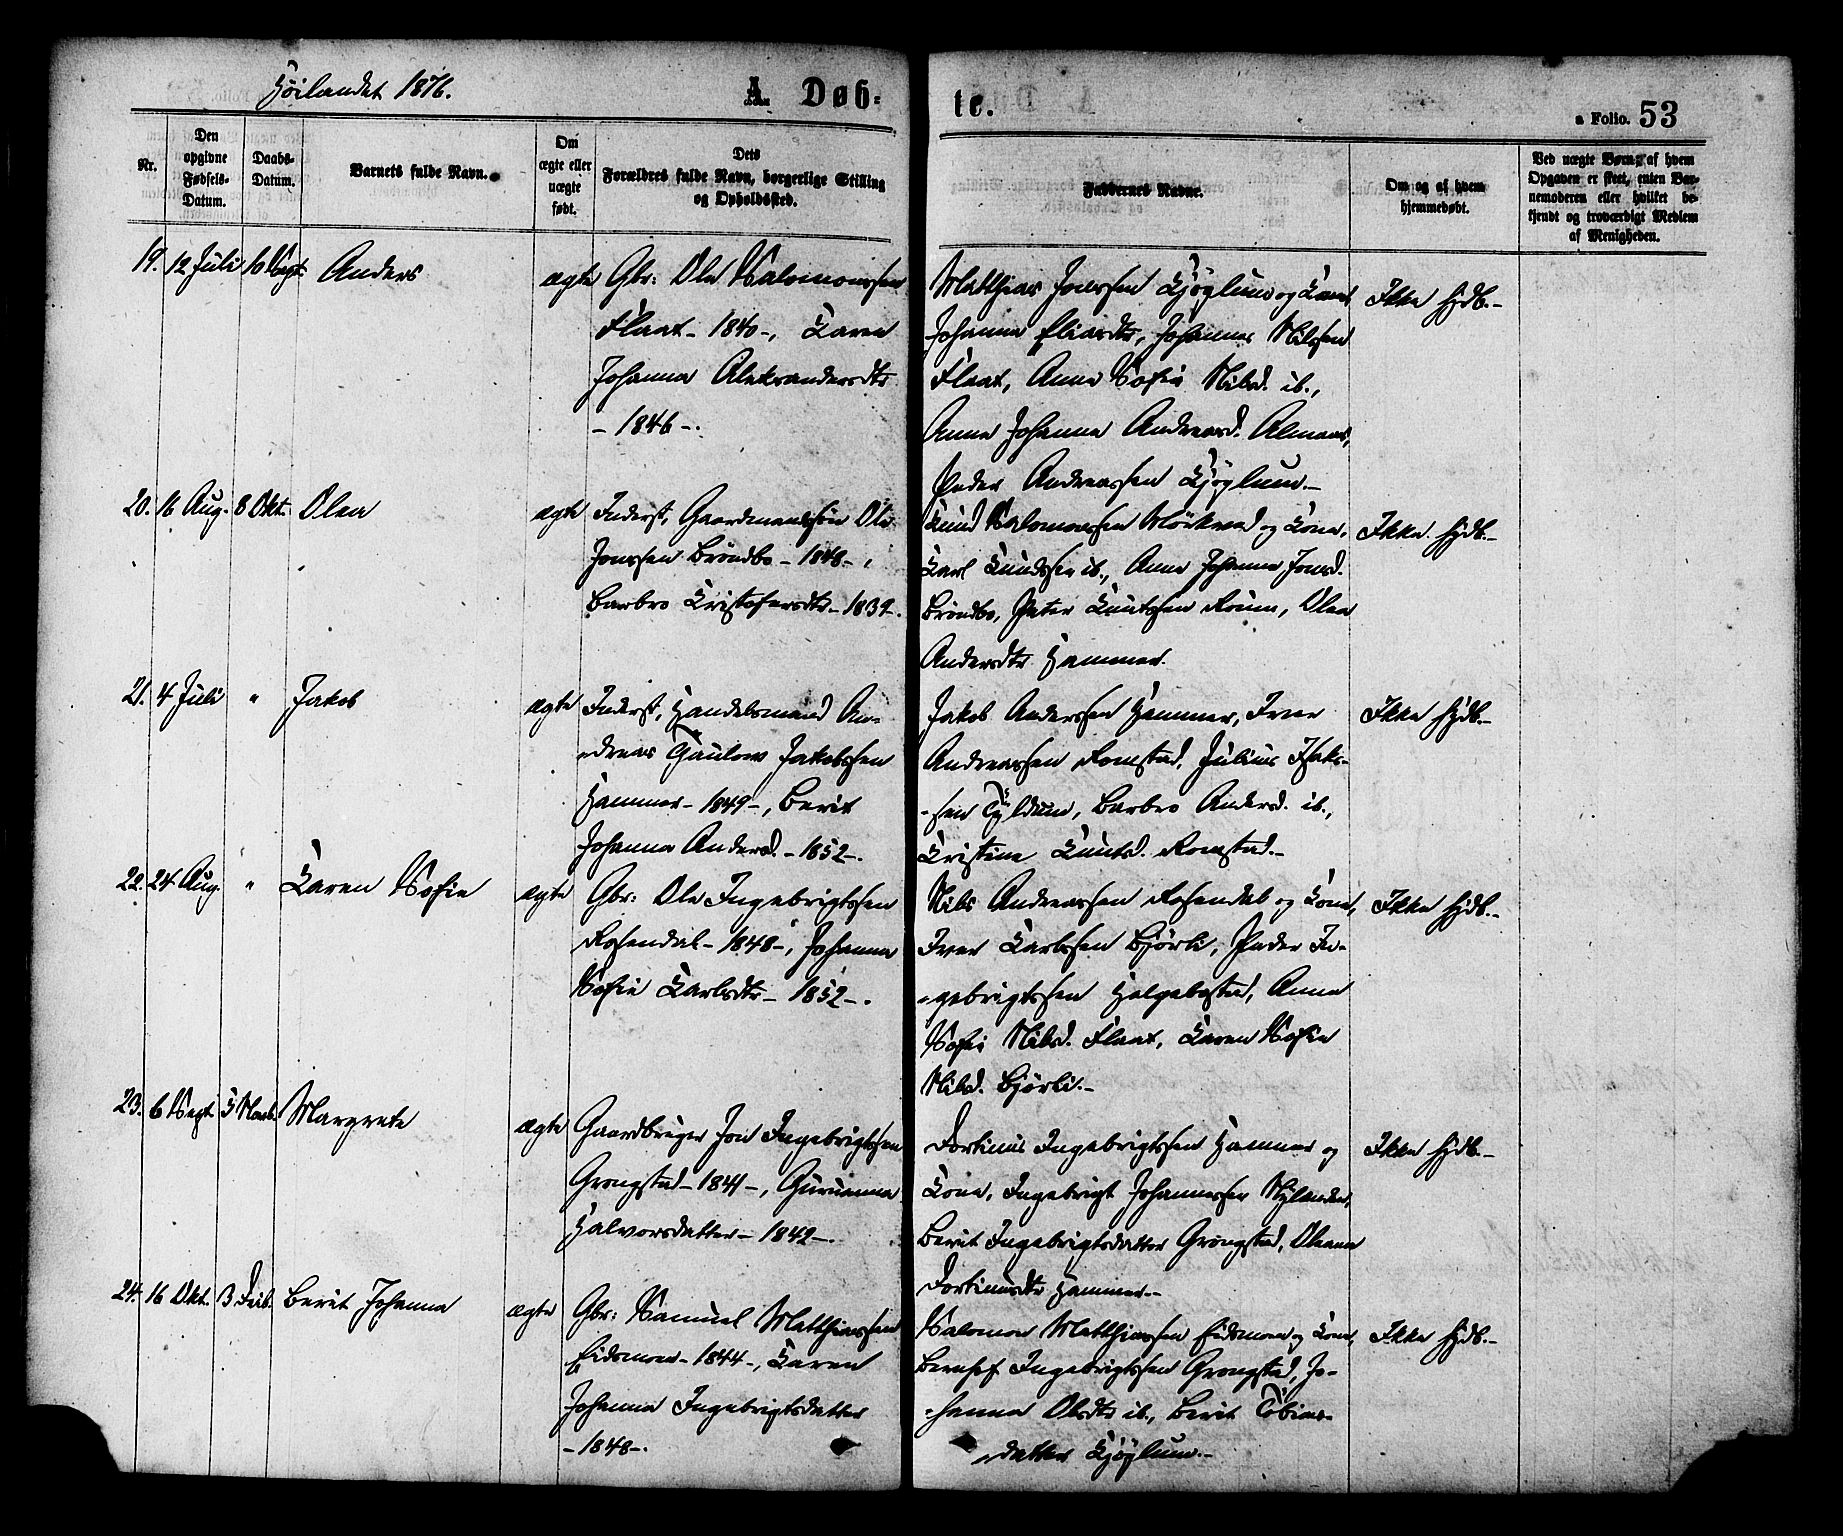 Höilandet 1876.
A. Døb-
te.
a Folio. 53
Nr.
Den opgivne Fødsels-Datum.
Daabs-Datum.
Barnets fulde Navn.
Om ægte eller uægte født.
Dets Forældres fulde Navn, borgerlige Stilling og Opholdssted.
Faddernes Navne.
Om og af hvem hjemmedøbt.
Ved uægte Børn, af hvem Opgaven er skeet, enten Barnemoderen eller hvilket bekjendt og troværdigt Medlem af Menigheden.
19. 12 Juli 10 Sept. Anders ægte Gbr: Ole Salomonssen
Flaat - 1840 -, Karen
Johanna Aleksandersdtr
- 1846 -.
Matthias Jonssen Kjøglum og Kone,
Johanna Eliasdtr, Johannes Nilssen
Flaat, Anne Sofie Nilsd. ib.,
Anne Johanna Andreasd. Almaas,
Peder Andreassen Kjøglum.-
Ikke hjdb.-
20. 16 Aug. 8 Okt. Olea ægte Inderst, Gaardmandssøn Ole
Jonssen Bröndbo - 1848 -,
Barbro Kristofersdtr - 1832 -.
Knud Salomonssen Mörkved og Kone,
Karl Knudssen ib., Anne Johanna Jonsd.
Bröndbo, Peter Knutssen Roum, Olea
Andersdtr Hammer.
Ikke hjdb.-
21. 4 Juli " Jakob ægte Inderst, Handelsmand An-
dreas Gaulow Jakobssen
Hammer - 1849 -, Berit
Johanna Andersd. - 1852 -.
Jakob Anderssen Hammer, Iver
Andreassen Romstad, Julius Isak-
sen Tyldum, Barbro Andersd. ib.,
Kristine Knutsd. Romstad.-
Ikke hjdb.-
22. 24 Aug. " Karen Sofie ægte Gbr: Ole Ingebrigtssen
Rosendal - 1848 -, Johanna
Sofie Karlsdtr - 1852 -.
Nils Andreassen Rosendal og Kone,
Iver Karlssen Bjørli, Peder In-
gebrigtssen Helgebostad, Anne
Sofie Nilsd. Flaat, Karen Sofie
Nilsd. Bjørli.-
Ikke hjdb.-
23. 6 Sept 5 Novb. Margrete ægte Gaardbruger Jon Ingebrigtssen
Grongstad - 1841 -, Gurianna
Halvorsdatter - 1842 -.
Fortinus Ingebrigtssen Hammer og
Kone, Ingebrigt Johannessen Nylandet,
Berit Ingebrigtsdatter Grongstad, Oleana
Fortinusdtr Hammer.-
Ikke hjdb.-
24. 16 Okt. 3 Berit Johanna ægte Gbr: Samuel Matthiassen
Eidsmoen - 1844 -, Karen
Johanna Ingebrigtsdatter
- 1848 -.
Salomon Matthiassen Eidsmoen og Kone,
Bernhof Ingebrigtssen Grongstad, Jo-
hanna Olsdtr ib., Berit Tobias-
datter Kjøglum.-
Ikke hjdb.-